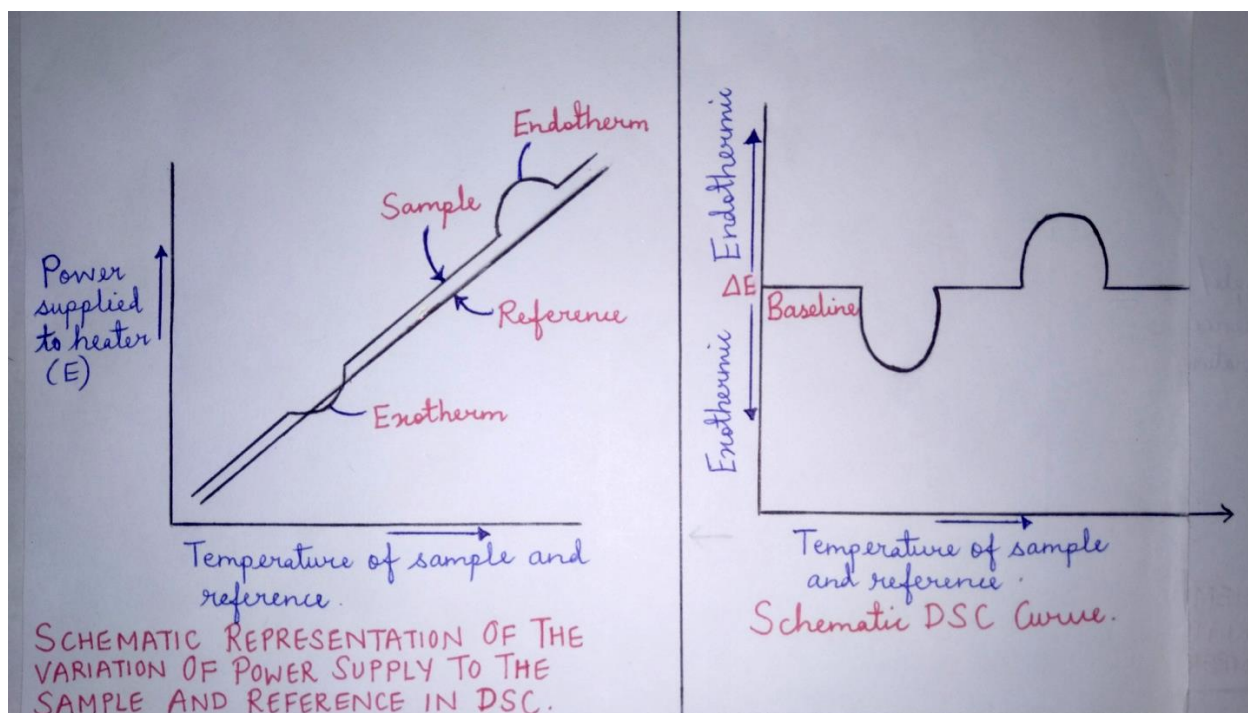 Endotherm
Sample
Power
supplied
to heater
(E)
Reference
Exotherm
Temperature of sample and
reference.
SCHEMATIC REPRESENTATION OF THE
VARIATION OF POWER SUPPLY TO THE
SAMPLE AND REFERENCE IN DSC.
Endothermic
ΔE
Baseline
Exothermic
Temperature of sample
and reference.
Schematic DSC Curve.